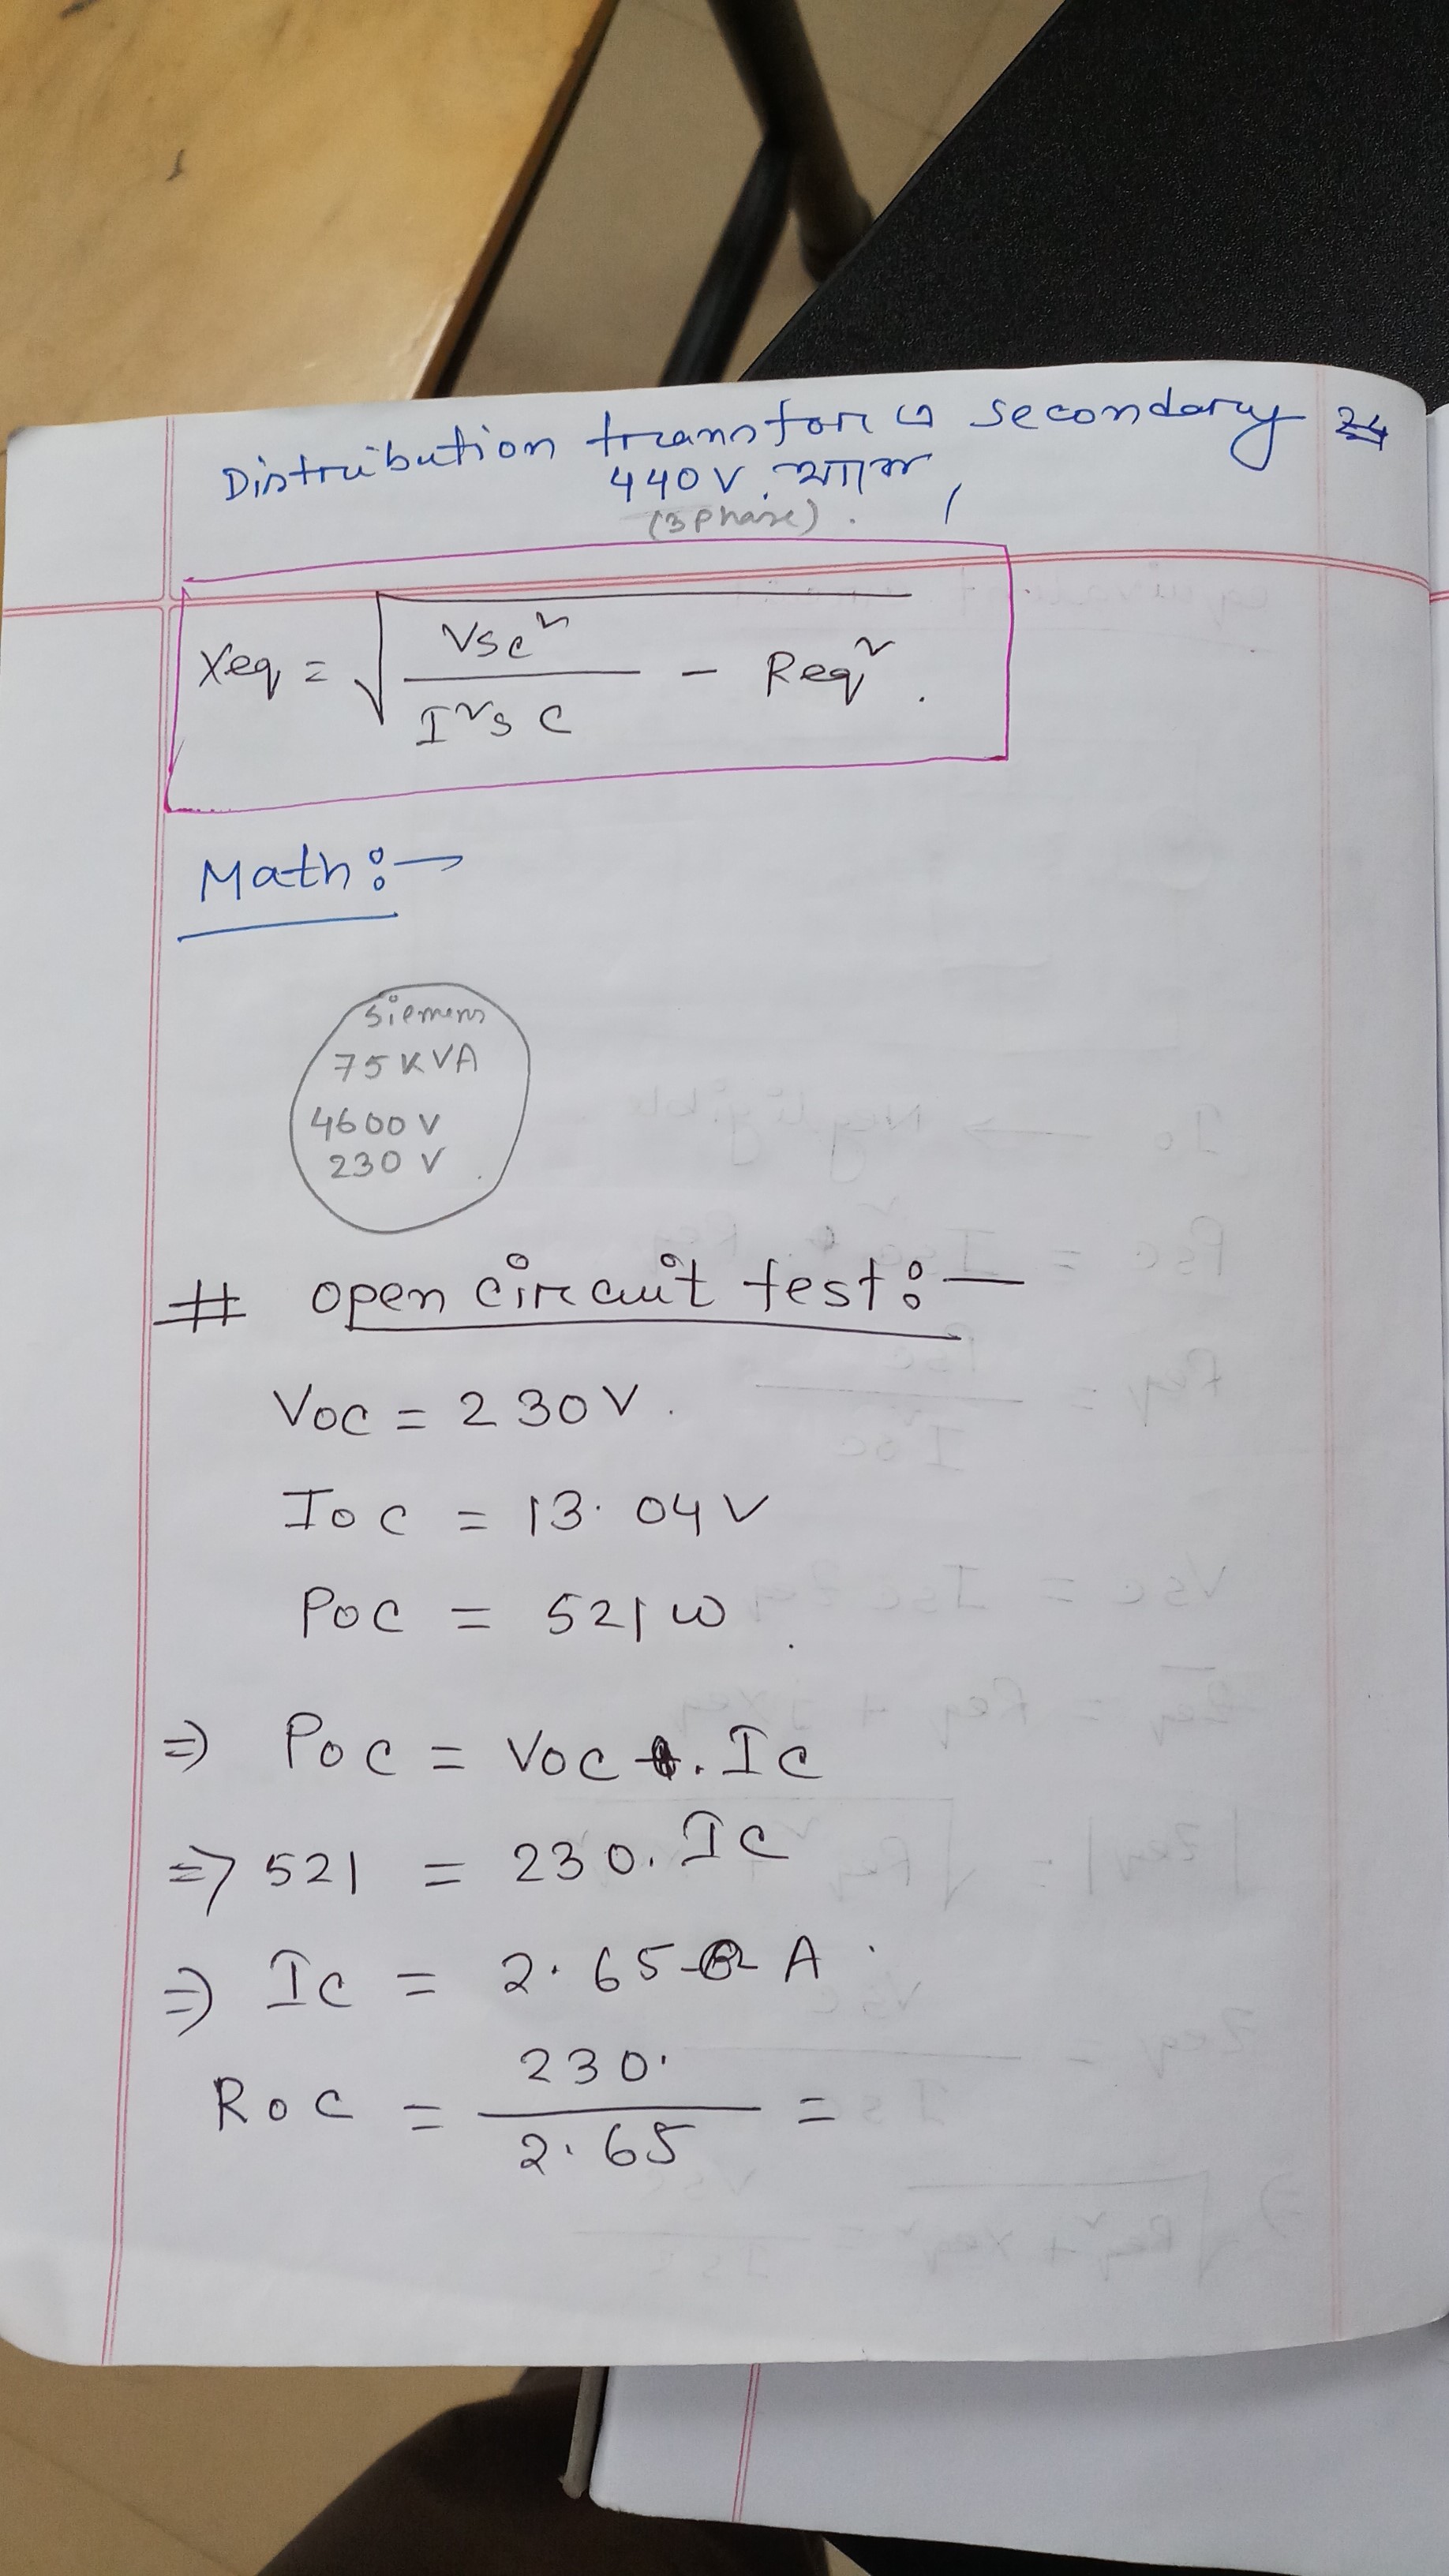 Distribution transfor এ secondary
440V থাকে,
(3 phase).
Xeq = √ Vsc² / I²sc - Req².
Math:→
Siemens
75 KVA
4600 V
230 V
# open circuit test:—
Voc = 230V.
Ioc = 13.04V
Poc = 521 W
⇒ Poc = Voc . Ic
⇒ 521 = 230. Ic
⇒ Ic = 2.65 A
Roc = 230. / 2.65 =